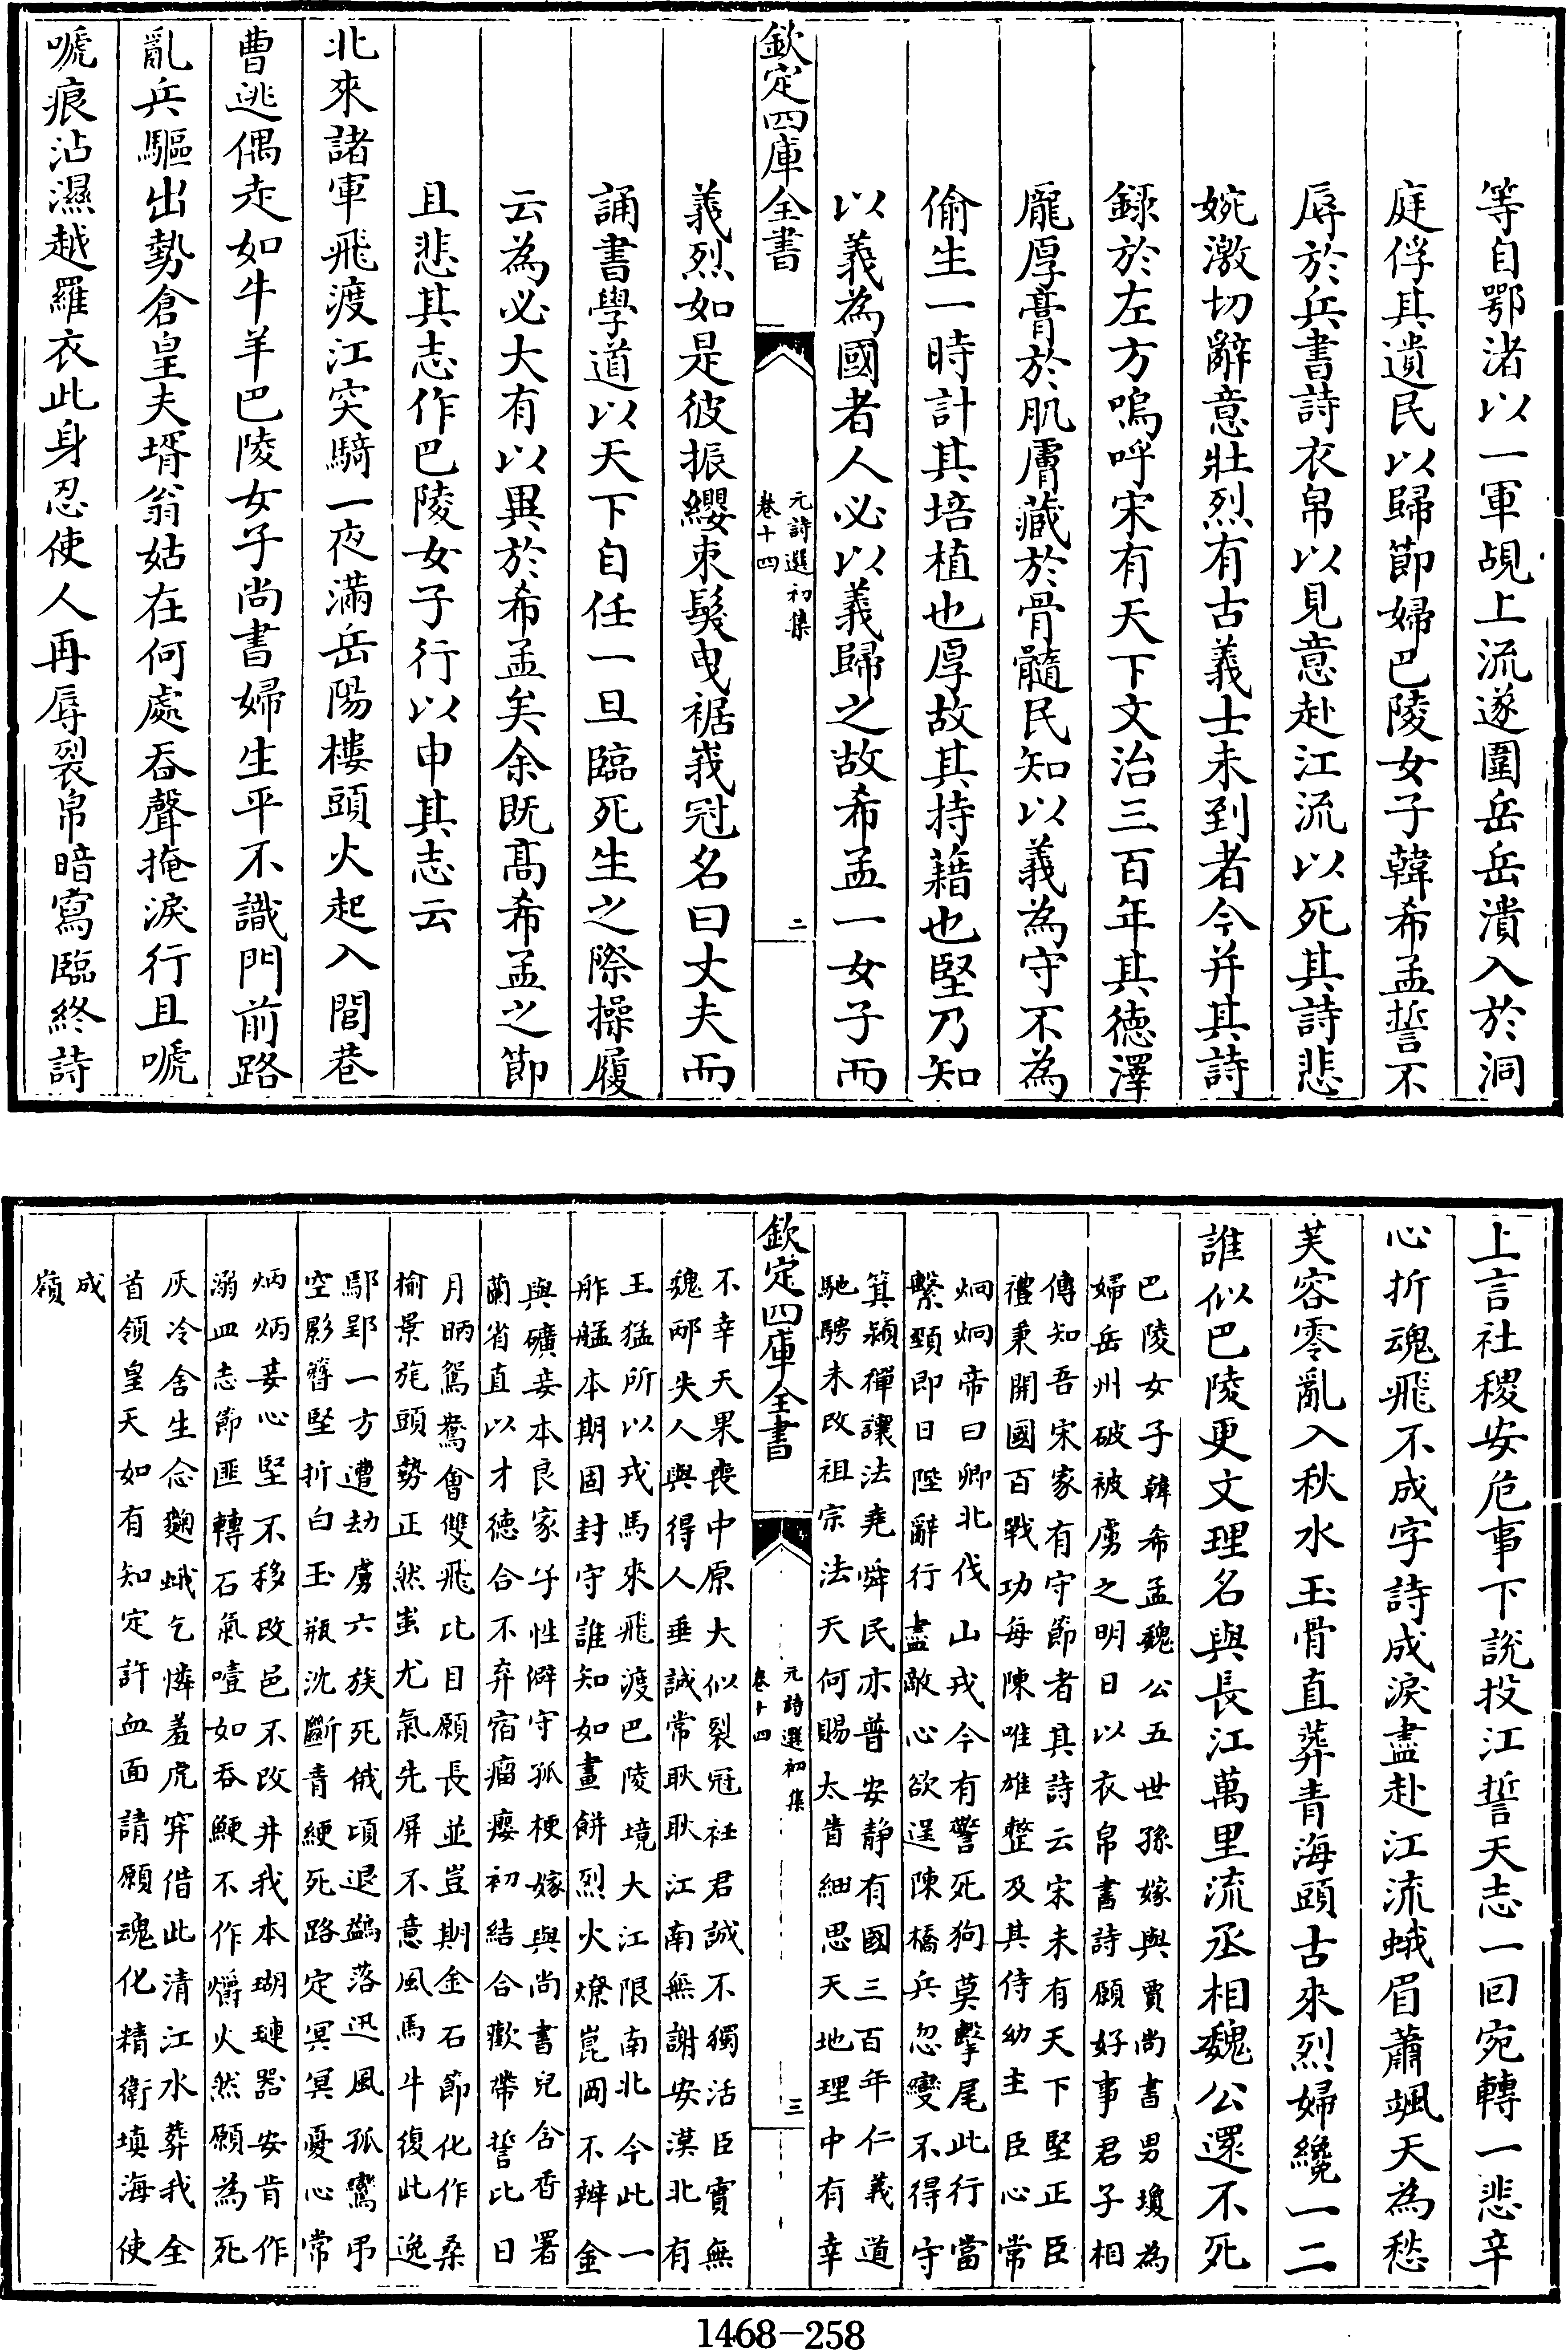 等自鄂渚以一軍覘上流遂圍岳岳潰入於洞
庭俘其遺民以歸節婦巴陵女子韓希孟誓不
辱於兵書詩衣帛以見意赴江流以死其詩悲
婉激切辭意壯烈有古義士未到者今并其詩
錄於左方嗚呼宋有天下文治三百年其德澤
龐厚膏於肌膚藏於骨髓民知以義為守不為
偷生一時計其培植也厚故其持藉也堅乃知
以義為國者人必以義歸之故希孟一女子而
欽定四庫全書
元詩選初集
卷十四
二
義烈如是彼振纓束髮曳裾峩冠名曰丈夫而
誦書學道以天下自任一旦臨死生之際操履
云為必大有以異於希孟矣余既髙希孟之節
且悲其志作巴陵女子行以申其志云
北來諸軍飛渡江突騎一夜滿岳陽樓頭火起入閭巷
曹逃偶走如牛羊巴陵女子尚書婦生平不識門前路
亂兵驅出勢倉皇夫壻翁姑在何處吞聲掩淚行且嗁
嗁痕沾濕越羅衣此身忍使人再辱裂帛暗寫臨終詩
上言社稷安危事下說投江誓天志一回宛轉一悲辛
心折魂飛不成字詩成淚盡赴江流蛾眉蕭颯天為愁
芙容零亂入秋水玉骨直葬青海頭古來烈婦纔一二
誰似巴陵更文理名與長江萬里流丞相魏公還不死
巴陵女子韓希孟魏公五世孫嫁與賈尚書男瓊為
婦岳州破被虜之明日以衣帛書詩願好事君子相
傳知吾宋家有守節者其詩云宋未有天下堅正臣
禮秉開國百戰功每陳唯雄整及其侍幼主臣心常
炯炯帝曰卿北伐山戎今有警死狗莫擊尾此行當
繫頸即日陛辭行盡敵心欲逞陳橋兵忽變不得守
箕潁禪讓法堯舜民亦普安静有國三百年仁義道
馳騁未改祖宗法天何賜太眚細思天地理中有幸
欽定四庫全書
元詩選初集
卷十四
三
不幸天果喪中原大似裂冠衽君誠不獨活臣實無
魏邴失人與得人垂誡常耿耿江南無謝安漠北有
王猛所以戎馬來飛渡巴陵境大江限南北今此一
舴艋本期固封守誰知如畫餅烈火燎崑岡不辨金
與礦妾本良家子性僻守孤梗嫁與尚書兒含香署
蘭省直以才德合不弃宿瘤癭初結合歡帶誓比日
月昞鴛鴦會雙飛比目願長並豈期金石節化作桑
榆景旄頭勢正然蚩尤氣先屏不意風馬牛復此逸
鄢郢一方遭劫虜六族死俄頃退鷁落迅風孤鸞弔
空影簪堅折白玉瓶沈斷青綆死路定冥冥憂心常
炳炳妾心堅不移改邑不改井我本瑚璉器安肯作
溺皿志節匪轉石氣噎如吞鯁不作爝火然願為死
灰冷舍生念麴蛾乞憐羞虎穽借此清江水葬我全
首領皇天如有知定許血面請願魂化精衛填海使
成
嶺
1468-258